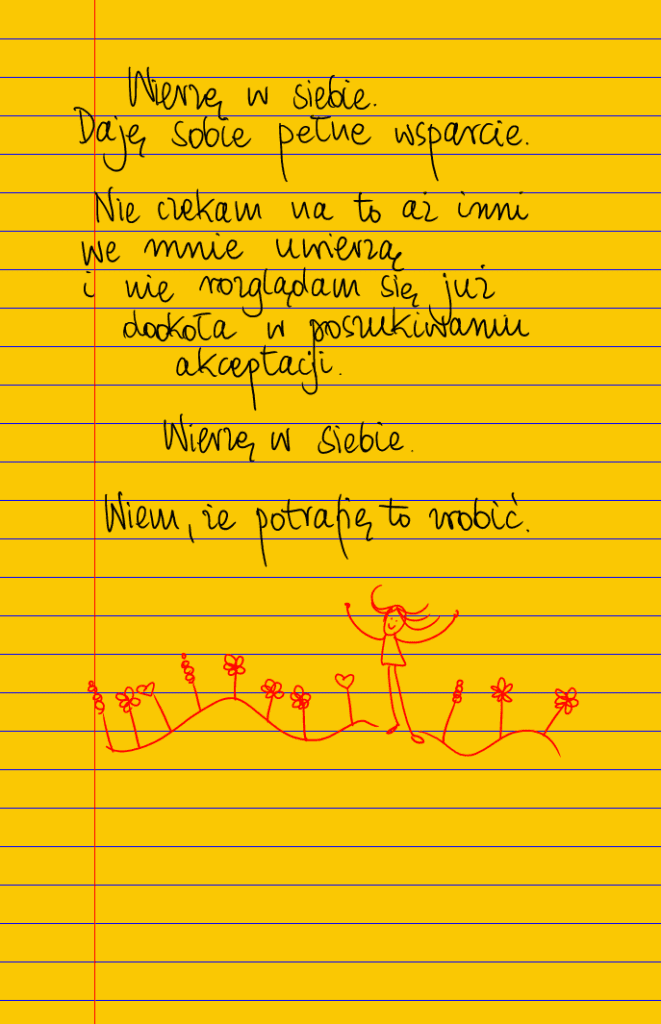 Wierzę w siebie.
Daję sobie pełne wsparcie.
Nie czekam na to aż inni
we mnie uwierzą
i nie rozglądam się już
dookoła w poszukiwaniu
akceptacji.
Wierzę w siebie.
Wiem, że potrafię to zrobić.